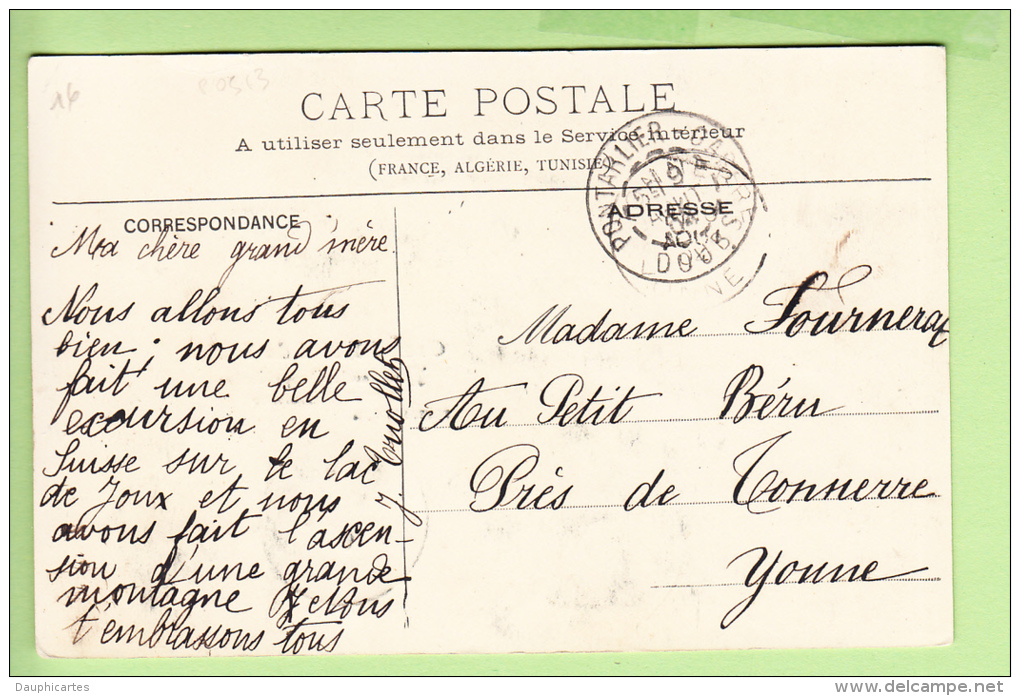 CARTE POSTALE
A utiliser seulement dans le Service intérieur
(FRANCE, ALGÉRIE, TUNISIE)
CORRESPONDANCE
Ma chère grand'mère
Nous allons tous
bien; nous avons
fait une belle
excursion en
Suisse sur le lac
de Joux et nous
avons fait l'ascen-
sion d'une grande
montagne
t'embrassons tous
ADRESSE
PONTARLIER GARE
DOUBS
Madame Fournerat
Au Petit Béru
Près de Tonnerre
Yonne
Dauphicartes
www.delcampe.net